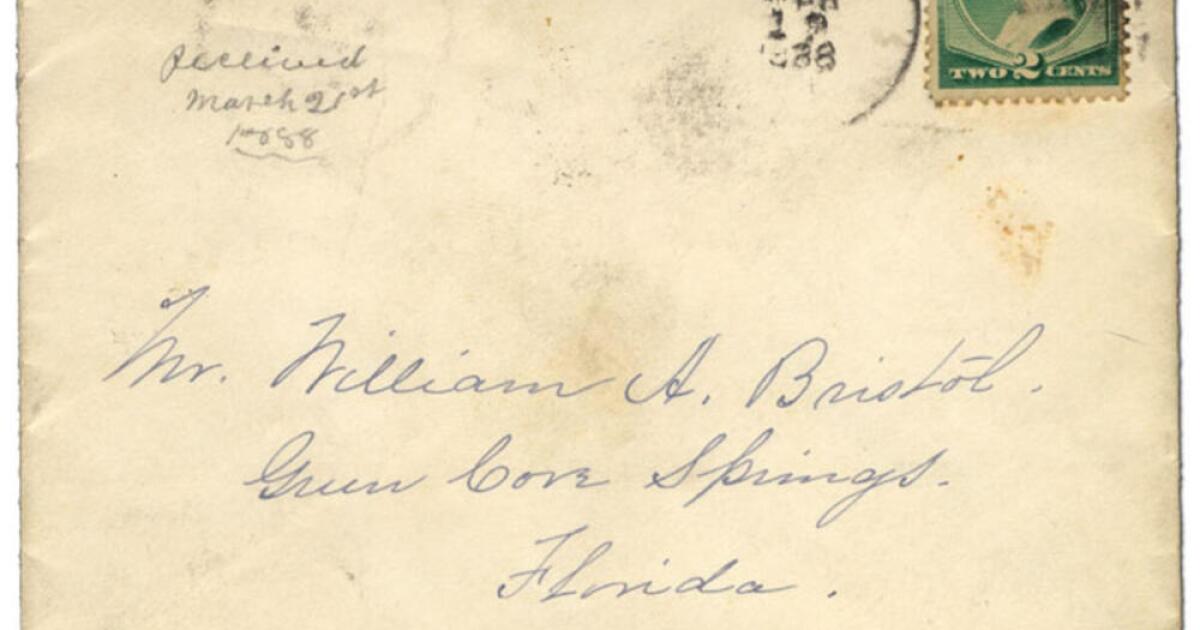 received
March 21st
1888
19
TWO 2 CENTS
Mr. William A. Bristol.
Green Cove Springs.
Florida.